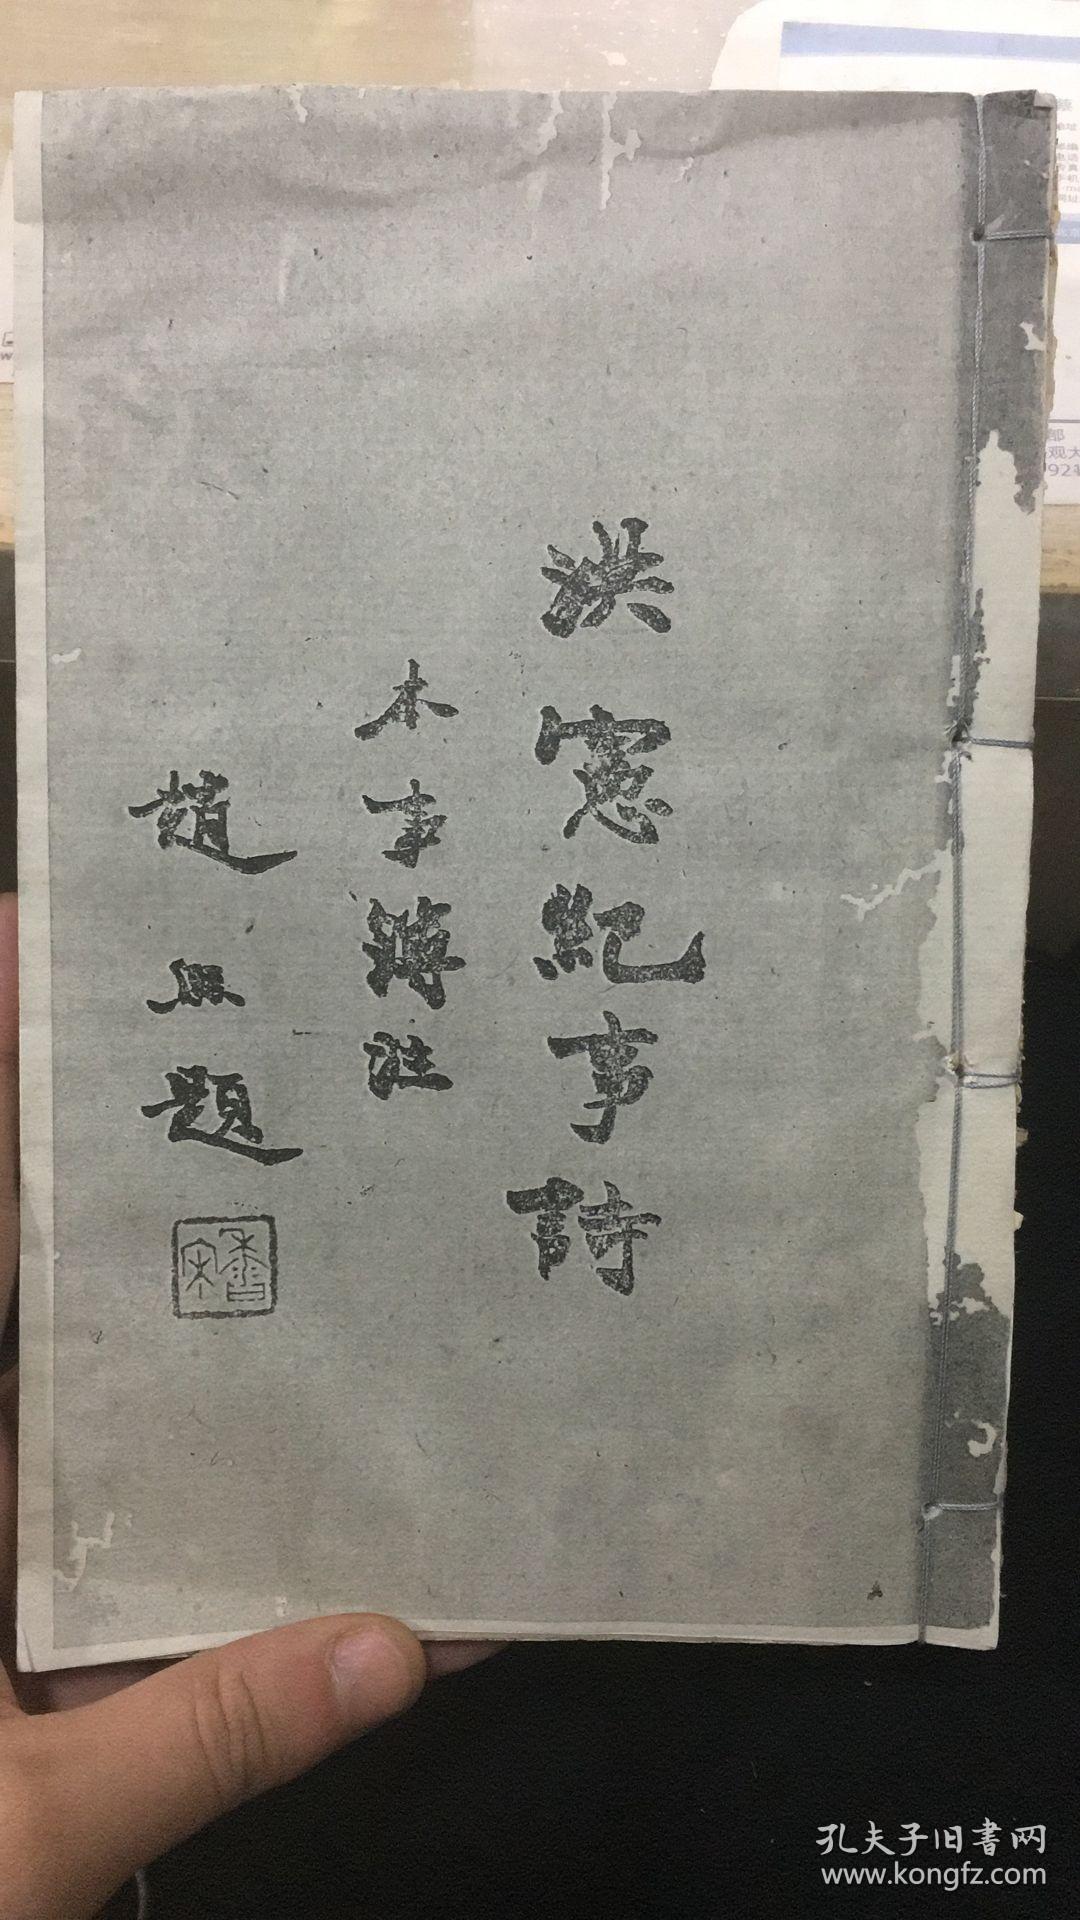 洪憲紀事詩
本事簿注
趙熙題
香宋
孔夫子旧書网
www.kongfz.com